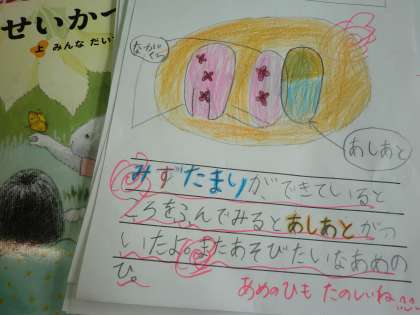 せいかつ
上 みんな だい
ながぐつ
あしあと
みずたまりが、できているト
ころをふんでみるとあしあとがつ
いたよ。またあそびたいなあめの
ひ。
あめのひも たのしいね